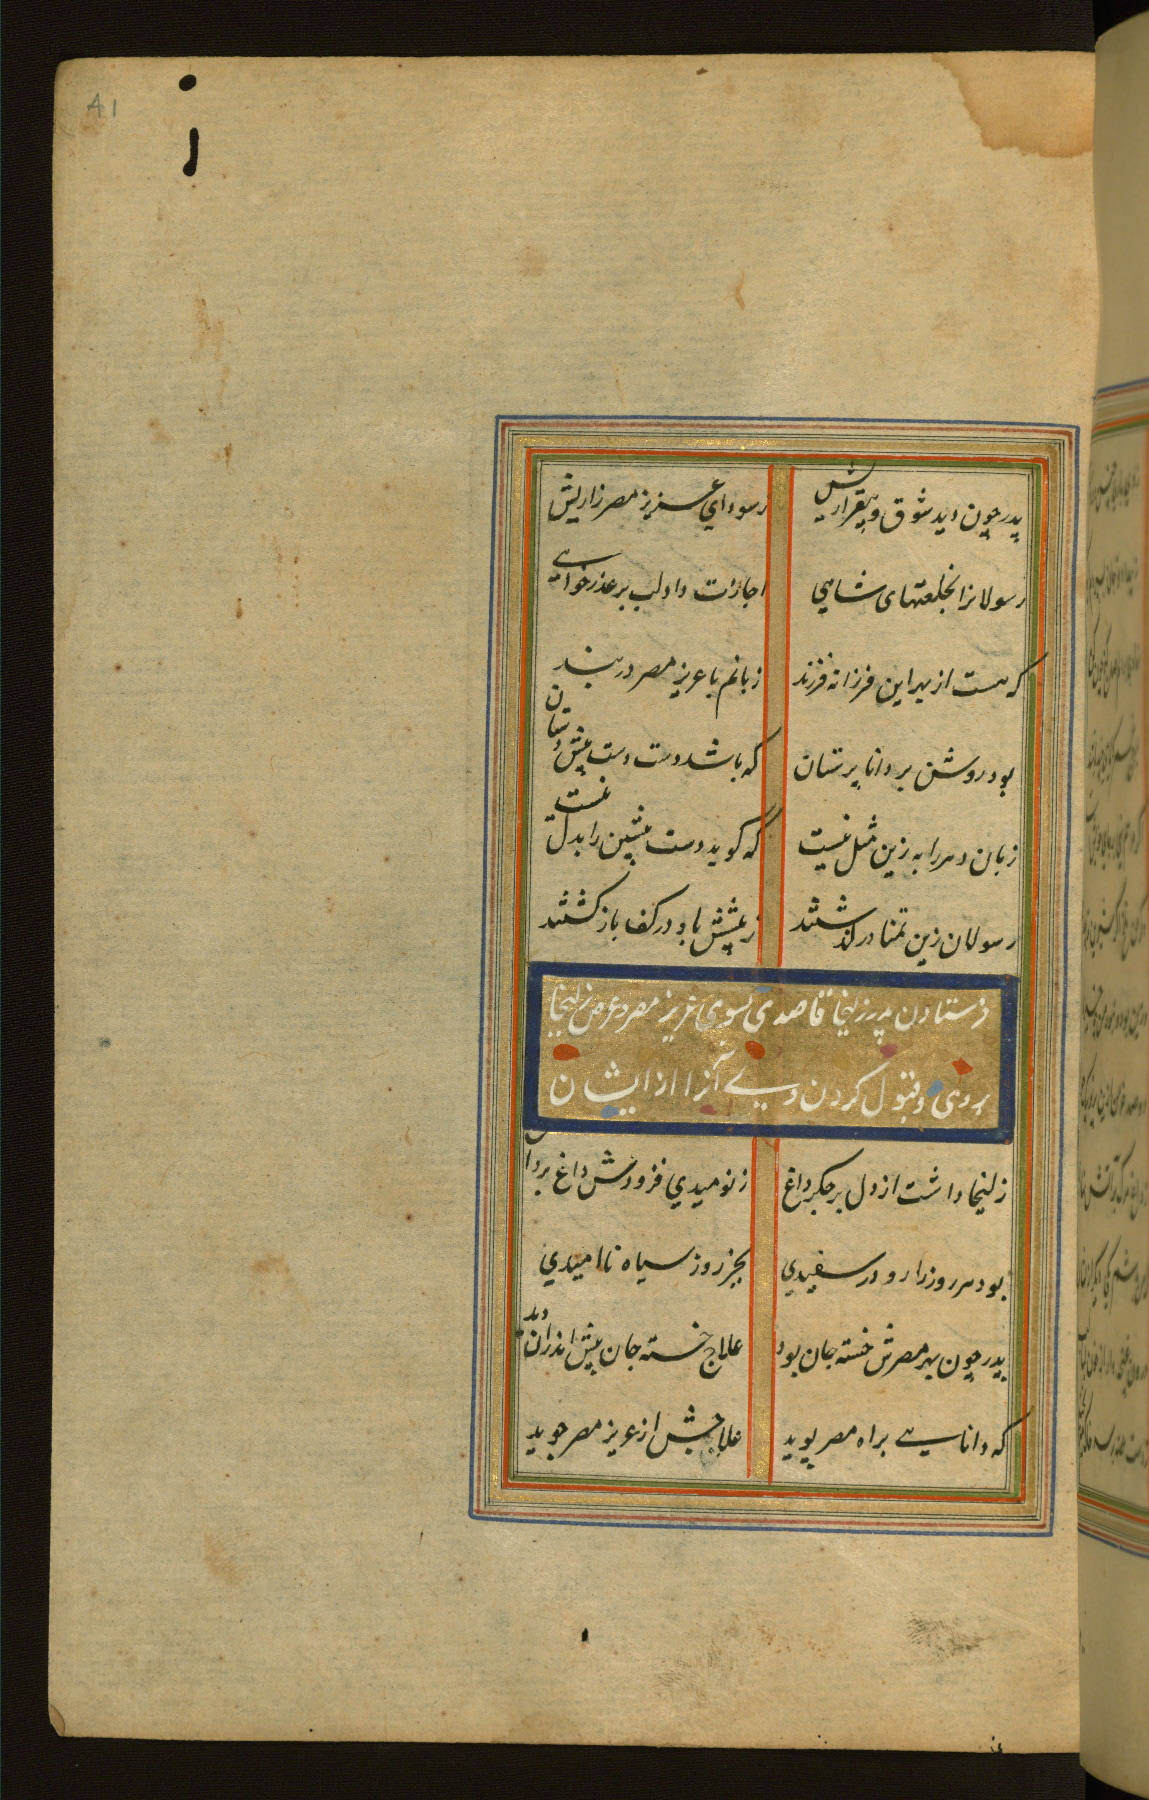 41
پدر چون دید شوق و بیقراریش
ز سودای عزیز مصر زاریش
رسولانرا بخلعتهای شاهی
اجازت داد لب بر عذرخواهی
که هست از بهر این فرزانه فرزند
زبانم با عزیز مصر در بند
بود روشن بر دانا پرستان
که باشد دست دست پیش دستان
زبان دهر را به زین مثل نیست
که گوید دست پیشین را بدل نیست
رسولان زین تمنا در گذشتند
ز پیشش باد در کف باز گشتند
فرستادن پدر زلیخا قاصدی بسوی عزیز مصر و عرض زلیخا
بروی و قبول کردن وی آنرا از ایشان
زلیخا داشت از دل بر جگر داغ
ز نومیدی فزودش داغ بر داغ
بود هر روز را رو در سفیدی
بجز روز سیاه ناامیدی
پدر چون بهر مصرش خسته جان بود
علاج خسته جان پیش اندران دید
که دانایی براه مصر پوید
علاجش از عزیز مصر جوید